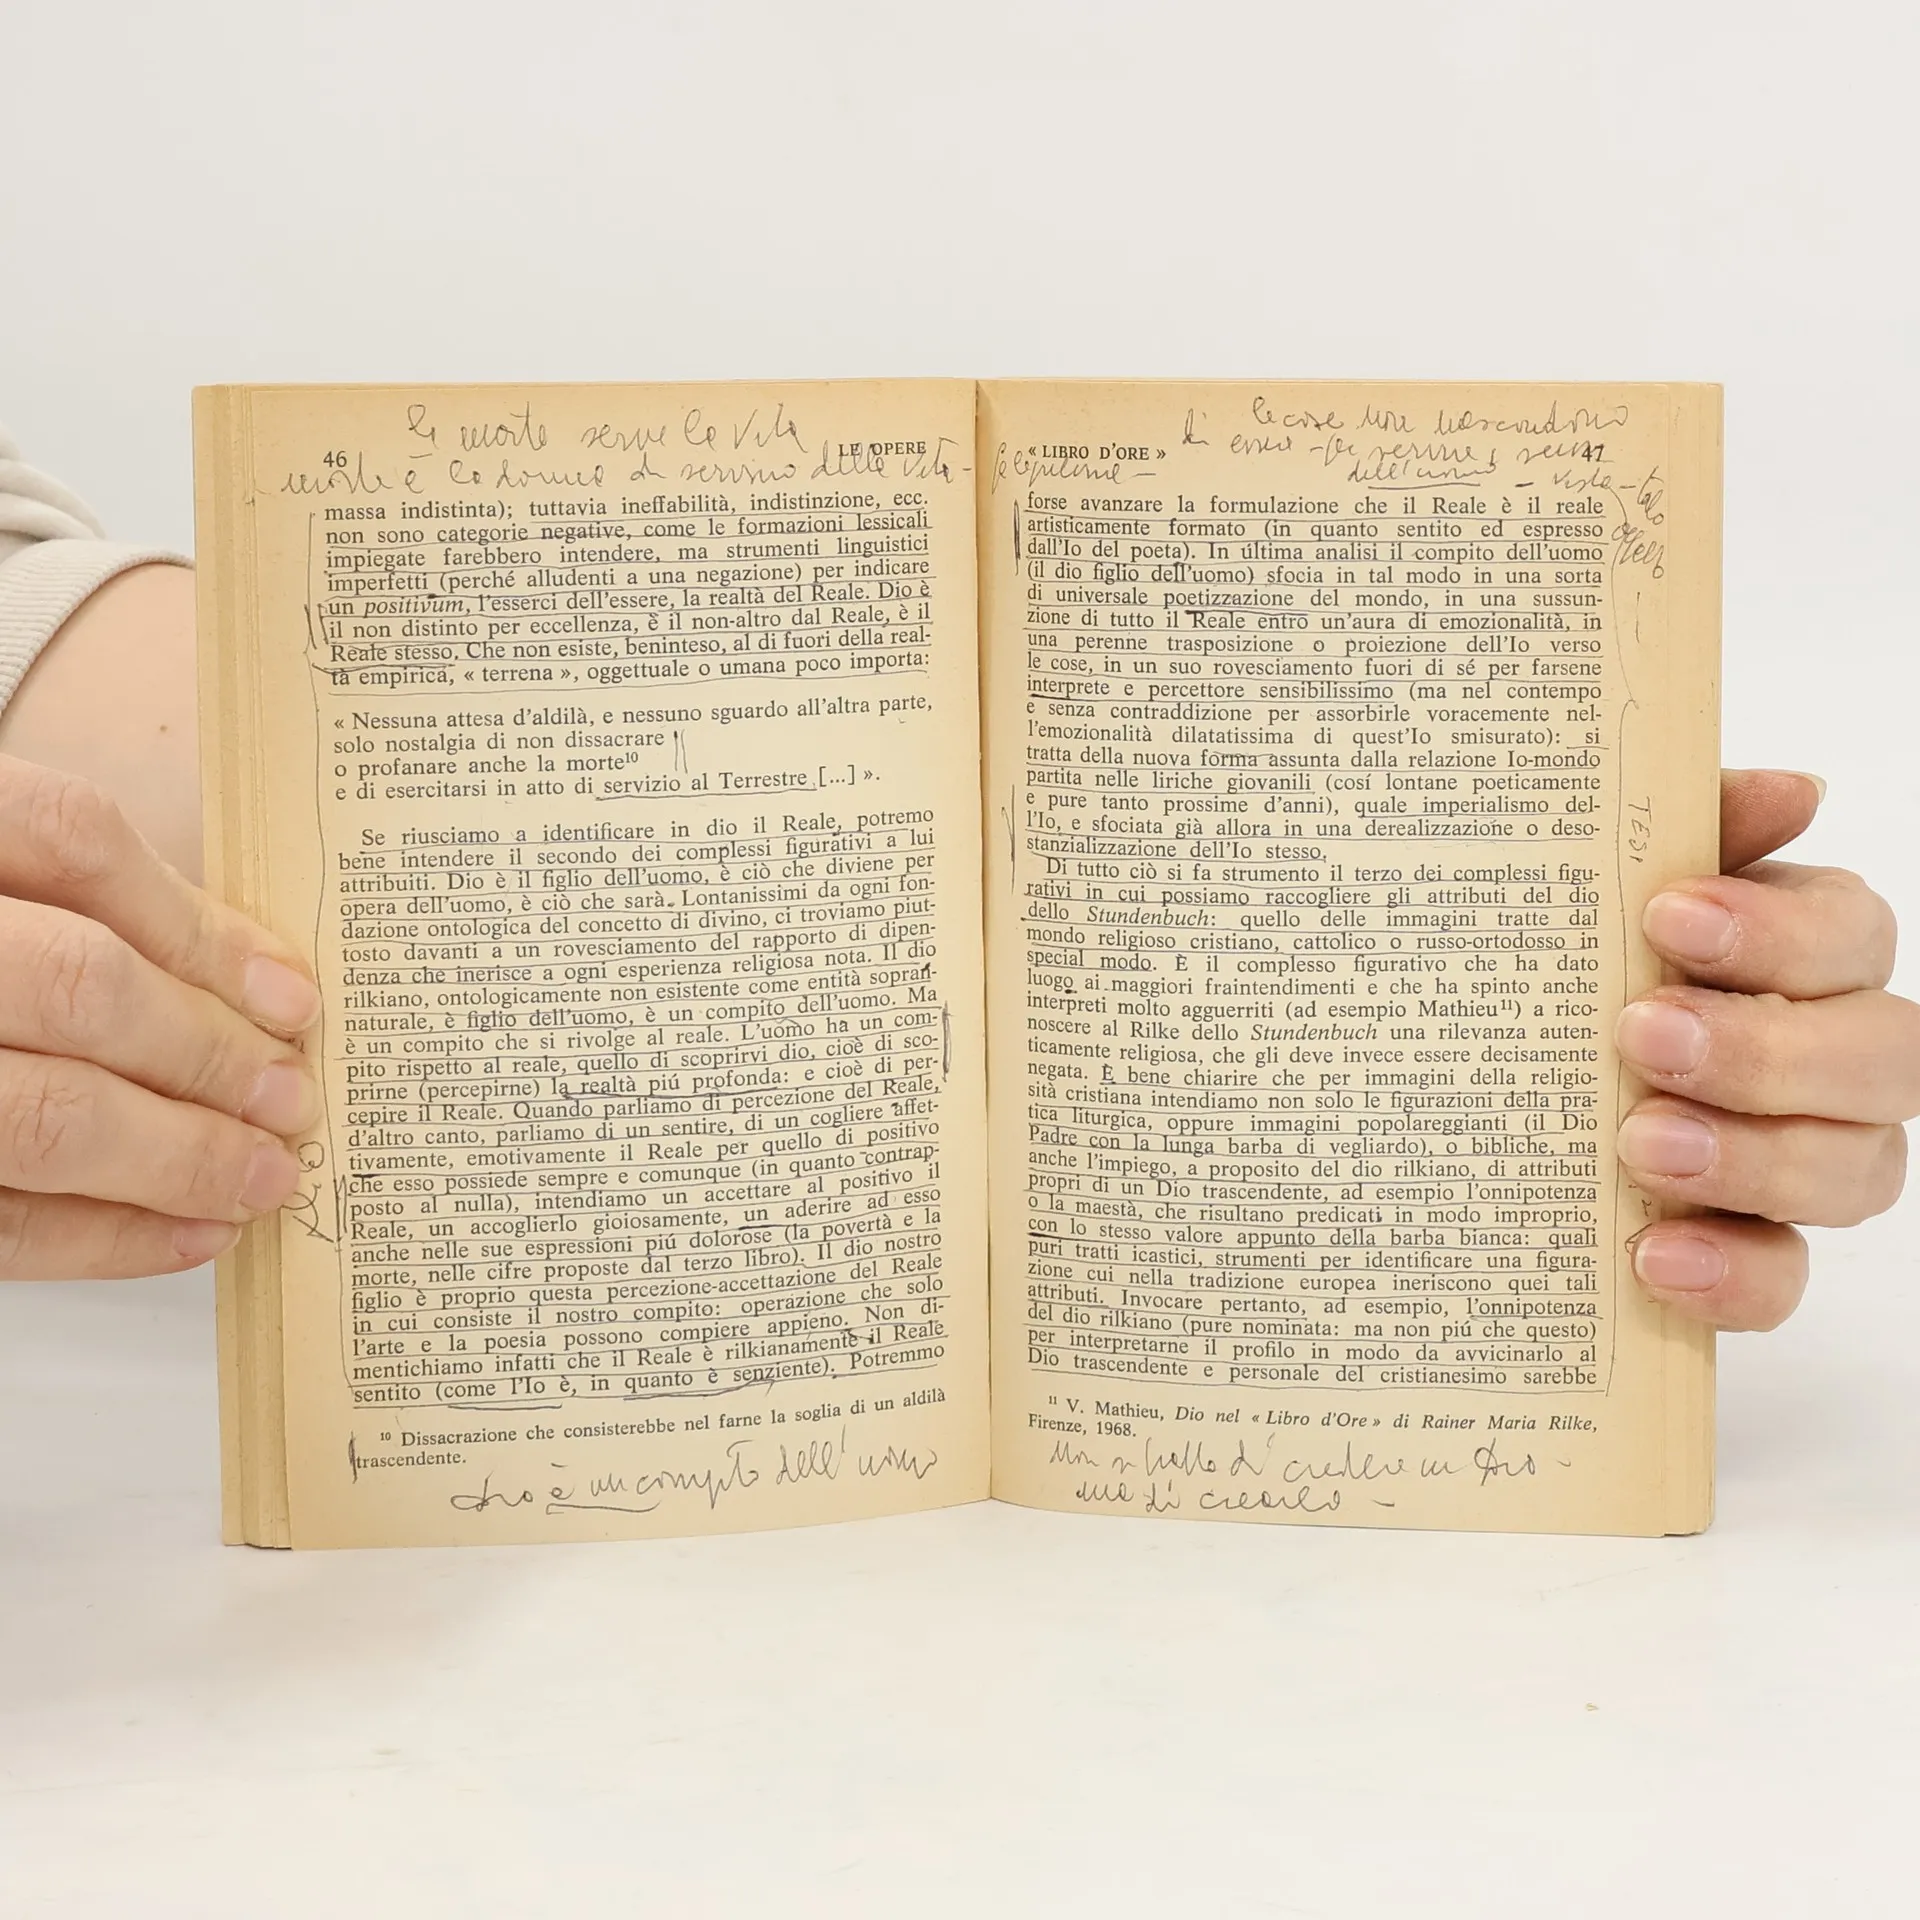 la morte serve la vita
46
LE OPERE
morte è la donna di servizio della vita -
massa indistinta); tuttavia ineffabilità, indistinzione, ecc.
non sono categorie negative, come le formazioni lessicali
impiegate farebbero intendere, ma strumenti linguistici
imperfetti (perché alludenti a una negazione) per indicare
un positivum, l'esserci dell'essere, la realtà del Reale. Dio è
il non distinto per eccellenza, è il non-altro dal Reale, è il
Reale stesso. Che non esiste, beninteso, al di fuori della real-
tà empirica, « terrena », oggettuale o umana poco importa:
« Nessuna attesa d'aldilà, e nessuno sguardo all'altra parte,
solo nostalgia di non dissacrare
o profanare anche la morte¹⁰
e di esercitarsi in atto di servizio al Terrestre [...] ».
Se riusciamo a identificare in dio il Reale, potremo
bene intendere il secondo dei complessi figurativi a lui
attribuiti. Dio è il figlio dell'uomo, è ciò che diviene per
opera dell'uomo, è ciò che sarà. Lontanissimi da ogni fon-
dazione ontologica del concetto di divino, ci troviamo piut-
tosto davanti a un rovesciamento del rapporto di dipen-
denza che inerisce a ogni esperienza religiosa nota. Il dio
rilkiano, ontologicamente non esistente come entità sopran-
naturale, è figlio dell'uomo, è un compito dell'uomo. Ma
è un compito che si rivolge al reale. L'uomo ha un com-
pito rispetto al reale, quello di scoprirvi dio, cioè di sco-
prirne (percepirne) la realtà piú profonda: e cioè di per-
cepire il Reale. Quando parliamo di percezione del Reale,
d'altro canto, parliamo di un sentire, di un cogliere affet-
tivamente, emotivamente il Reale per quello di positivo
che esso possiede sempre e comunque (in quanto contrap-
posto al nulla), intendiamo un accettare al positivo il
Reale, un accoglierlo gioiosamente, un aderire ad esso
anche nelle sue espressioni piú dolorose (la povertà e la
morte, nelle cifre proposte dal terzo libro). Il dio nostro
figlio è proprio questa percezione-accettazione del Reale
in cui consiste il nostro compito: operazione che solo
l'arte e la poesia possono compiere appieno. Non di-
mentichiamo infatti che il Reale è rilkianamente il Reale
sentito (come l'Io è, in quanto è senziente). Potremmo
¹⁰ Dissacrazione che consisterebbe nel farne la soglia di un aldilà
trascendente.
Dio è un compito dell'uomo
DIO
le cose non nascondono
« LIBRO D'ORE »
47
dell'uomo
forse avanzare la formulazione che il Reale è il reale
artisticamente formato (in quanto sentito ed espresso
dall'Io del poeta). In última analisi il compito dell'uomo
(il dio figlio dell'uomo) sfocia in tal modo in una sorta
di universale poetizzazione del mondo, in una sussun-
zione di tutto il Reale entro un'aura di emozionalità, in
una perenne trasposizione o proiezione dell'Io verso
le cose, in un suo rovesciamento fuori di sé per farsene
interprete e percettore sensibilissimo (ma nel contempo
e senza contraddizione per assorbirle voracemente nel-
l'emozionalità dilatatissima di quest'Io smisurato): si
tratta della nuova forma assunta dalla relazione Io-mondo
partita nelle liriche giovanili (cosí lontane poeticamente
e pure tanto prossime d'anni), quale imperialismo del-
l'Io, e sfociata già allora in una derealizzazione o deso-
stanzializzazione dell'Io stesso.
Di tutto ciò si fa strumento il terzo dei complessi figu-
rativi in cui possiamo raccogliere gli attributi del dio
dello Stundenbuch: quello delle immagini tratte dal
mondo religioso cristiano, cattolico o russo-ortodosso in
special modo. È il complesso figurativo che ha dato
luogo ai maggiori fraintendimenti e che ha spinto anche
interpreti molto agguerriti (ad esempio Mathieu¹¹) a rico-
noscere al Rilke dello Stundenbuch una rilevanza auten-
ticamente religiosa, che gli deve invece essere decisamente
negata. È bene chiarire che per immagini della religio-
sità cristiana intendiamo non solo le figurazioni della pra-
tica liturgica, oppure immagini popolareggianti (il Dio
Padre con la lunga barba di vegliardo), o bibliche, ma
anche l'impiego, a proposito del dio rilkiano, di attributi
propri di un Dio trascendente, ad esempio l'onnipotenza
o la maestà, che risultano predicati in modo improprio,
con lo stesso valore appunto della barba bianca: quali
puri tratti icastici, strumenti per identificare una figura-
zione cui nella tradizione europea ineriscono quei tali
attributi. Invocare pertanto, ad esempio, l'onnipotenza
del dio rilkiano (pure nominata: ma non piú che questo)
per interpretarne il profilo in modo da avvicinarlo al
Dio trascendente e personale del cristianesimo sarebbe
TESI
¹¹ V. Mathieu, Dio nel « Libro d'Ore » di Rainer Maria Rilke,
Firenze, 1968.
Non si tratta di credere in Dio -
ma di crearlo -